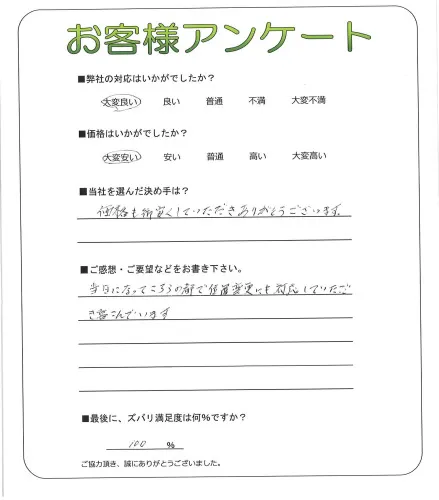 お客様アンケート
■弊社の対応はいかがでしたか?
大変良い 良い 普通 不満 大変不満
■価格はいかがでしたか?
大変安い 安い 普通 高い 大変高い
■当社を選んだ決め手は?
価格も御安くしていただきありがとうございます。
■ご感想・ご要望などをお書き下さい。
当日になってこちらの都で位置変更にも対応していただ
き喜んでいます
■最後に、ズバリ満足度は何%ですか?
100 %
ご協力頂き、誠にありがとうございました。